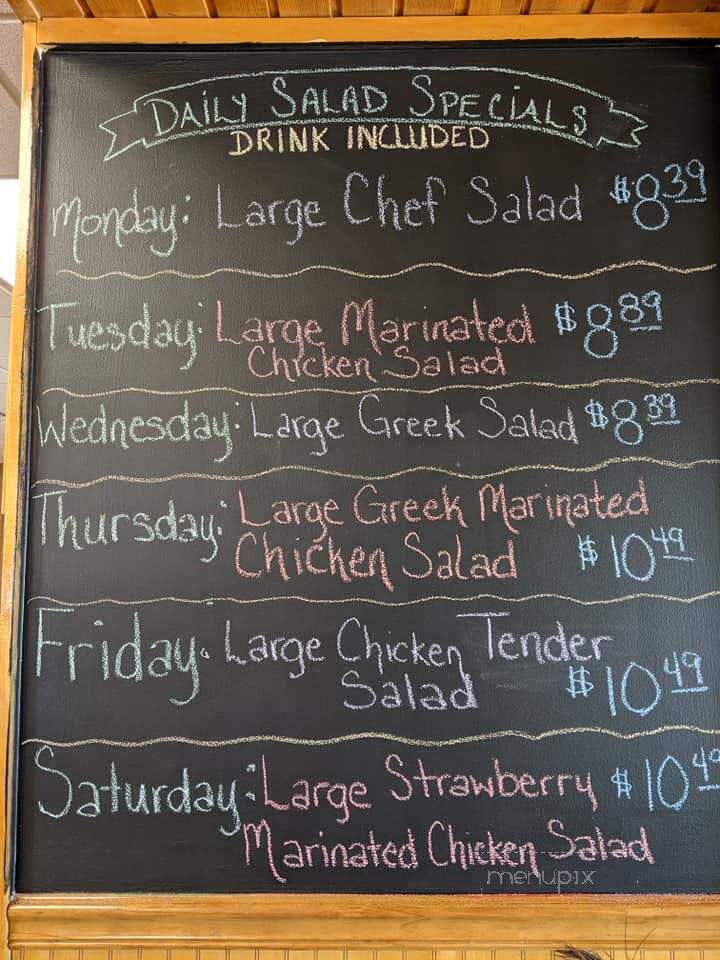 Daily Salad Specials
DRINK INCLUDED
Monday: Large Chef Salad $8.39
Tuesday: Large Marinated $8.89
Chicken Salad
Wednesday: Large Greek Salad $8.39
Thursday: Large Greek Marinated
Chicken Salad $10.49
Friday: Large Chicken Tender
Salad $10.49
Saturday: Large Strawberry $10.49
Marinated Chicken Salad
menupix